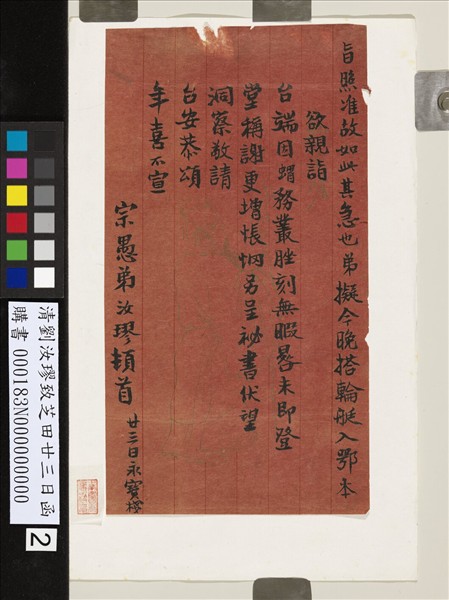 旨照准故如此其急也弟擬今晚搭輪艇入鄂本
欲親詣
台端因蝟務叢脞刻無暇晷未即登
堂稱謝更增悵惘另呈祕書伏望
洞察敬請
台安恭頌
年喜不宣
宗愚弟汝璆頓首
廿三日永寶
清劉汝璆致芝田廿三日函
購書 000183N000000000
2